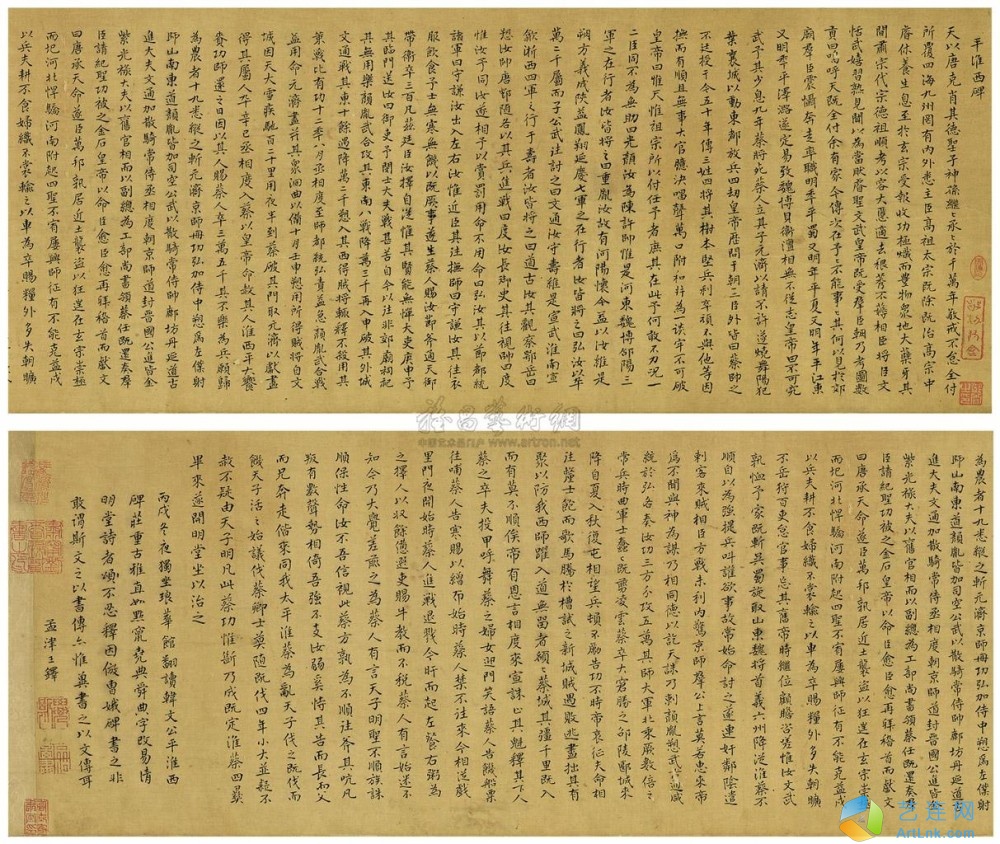 平淮西碑
天以唐克肖其德聖子神孫繼〻承〻於千萬年敬戒不怠全付
所覆四海九州罔有內外悉主悉臣高祖太宗既除既治高宗中
睿休養生息至於玄宗受報收功極熾而豐物衆地大孽牙其
間肅宗代宗德祖順考以容大慝適去稂莠不薅相臣將臣文
恬武嬉習熟見聞以為當然睿聖文武皇帝既受群臣朝乃考圖數
貢曰嗚呼天既全付余有家今傳次在予〻不能事〻其何以見於郊
廟群臣震懾奔走率職明年平蜀又明年平夏又明年平江東
又明年平澤潞遂定易致魏博貝衛澶相無不從志皇帝曰不可究
武予其少息九年蔡將死蔡人立其子元濟以請不許遂燒舞陽犯
葉襄城以動東都放兵四劫皇帝歷問于朝二臣外皆曰蔡帥之
不廷授于今五十年傳三姓四將其樹本堅兵利卒頑不與他等因
撫而有順且無事大官臆決唱聲萬口附和并為一談牢不可破
皇帝曰惟天惟祖宗所以付任予者庶其在此予何敢不力況一
二臣同不為無助曰光顏汝為陳許帥惟是河東魏博郃陽三
軍之在行者汝皆將之曰重胤汝故有河陽懷今益以汝維是
朔方義成陝益鳳翔延慶七軍之在行者汝皆將之曰弘汝以卒
萬二千屬而子公武往討之曰文通汝守壽維是宣武淮南宣
歙浙西四軍之行于壽者汝皆將之曰道古汝其觀察鄂岳曰
愬汝帥唐鄧隨各以其兵進戰曰度汝長御史其往視師曰度
惟汝予同汝遂相予以賞罰用命不用命曰弘汝其以節都統
諸軍曰守謙汝出入左右汝惟近臣其往撫師曰度汝其往衣
服飲食予士無寒無飢以既厥事遂生蔡人賜汝節斧通天御
帶衛卒三百凡茲廷臣汝擇自從惟其賢能無憚大吏庚申予
其臨門送汝曰御史予閔士大夫戰甚苦自今以往非郊廟祠祀
其無用樂顏胤武合攻其東南八戰降萬三千再入申破其外城
文通戰其東十餘遇降萬二千愬入其西得賊將輒釋不殺用其
策戰比有功十二年八月丞相度至師都統弘責益急顏胤武合戰
益用命元濟盡并其衆洄曲以備十月壬申愬用所得賊將自文
城因天大雪疾馳百二十里用夜半到蔡破其門取元濟以獻盡
得其屬人卒辛巳丞相度入蔡以皇帝命赦其人淮西平大饗
賚功師還之日因以其人賜蔡人卒三萬五千其不樂為兵願歸
為農者十九悉縱之斬元濟京師冊功弘加侍中愬為左僕射
帥山南東道顏胤皆加司空公武以散騎常侍帥鄜坊丹延道古
進大夫文通加散騎常侍丞相度朝京師道封晉國公進皆金
紫光祿大夫以舊官相而以副總為工部尚書領蔡任既還奏群
臣請紀聖功被之金石皇帝以命臣愈臣愈再拜稽首而獻文
曰唐承天命遂臣萬邦孰居近土襲盜以狂往在玄宗崇極
而圮河北悍驕河南附起四聖不宥屢興師征有不能克益戍
以兵夫耕不食婦織不裳輸之以車為卒賜糧外多失朝曠
為農者十九悉縱之斬元濟京師冊功弘加侍中愬為左僕射
帥山南東道顏胤皆加司空公武以散騎常侍帥鄜坊丹延道古
進大夫文通加散騎常侍丞相度朝京師道封晉國公進皆金
紫光祿大夫以舊官相而以副總為工部尚書領蔡任既還奏群
臣請紀聖功被之金石皇帝以命臣愈臣愈再拜稽首而獻文
曰唐承天命遂臣萬邦孰居近土襲盜以狂往在玄宗崇極
而圮河北悍驕河南附起四聖不宥屢興師征有不能克益戍
以兵夫耕不食婦織不裳輸之以車為卒賜糧外多失朝曠
不岳狩百吏怠官事忘其舊帝時繼位顧瞻咨嗟惟汝文武
孰恤予家既斬吳蜀旋取山東魏將首義六州降從淮蔡不
順自以為強提兵叫讙欲事故常始命討之遂連奸鄰陰遣
刺客來賊相臣方戰未利內驚京師群公上言莫若惠來帝
為不聞與神為謀乃相同德以訖天誅乃敕顏胤愬武古通咸
統於弘各奏汝功三方分攻五萬其師大軍北乘厥數倍之
常兵時曲軍士蠢〻既翦凌雲蔡卒大窘勝之邵陵郾城來
降自夏入秋復屯相望兵頓不勵告功不時帝哀征夫命相
往釐士飽而歌馬騰於槽試之新城賊遇敗逃盡抽其有
聚以防我西師躍入道無留者頟〻蔡城其疆千里既入
而有莫不順俟帝有恩言相度來宣誅止其魁釋其下人
蔡之卒夫投甲呼舞蔡之婦女迎門笑語蔡人告饑船粟
往哺蔡人告寒賜以繒布始時蔡人禁不往來今相從戲
里門夜開始時蔡人進戰退戮今旰而起左飱右粥為
之擇人以收餘憊選吏賜牛教而不稅蔡人有言始迷不
知今乃大覺羞前之為蔡人有言天子明聖不順族誅
順保性命汝不吾信視此蔡方孰為不順往斧其吭凡
叛有數聲勢相倚吾強不支汝弱奚恃其告而長而父
而兄奔走偕來同我太平淮蔡為亂天子伐之既伐而
饑天子活之始議伐蔡卿士莫隨既伐四年小大並疑不
赦不疑由天子明凡此蔡功惟斷乃成既定淮蔡四夷
畢來遂開明堂坐以治之
丙戌冬夜獨坐琅華館翻讀韓文公平淮西
碑莊重古雅直如點竄堯典舜典字改易清
明堂詩者頌不忍釋因倣曹娥碑書之非
敢謂斯文之以書傳亦惟冀書之以文傳耳
孟津王鐸
雅昌藝術網
中国艺术品门户 www.artron.net
艺连网
ArtLnk.com